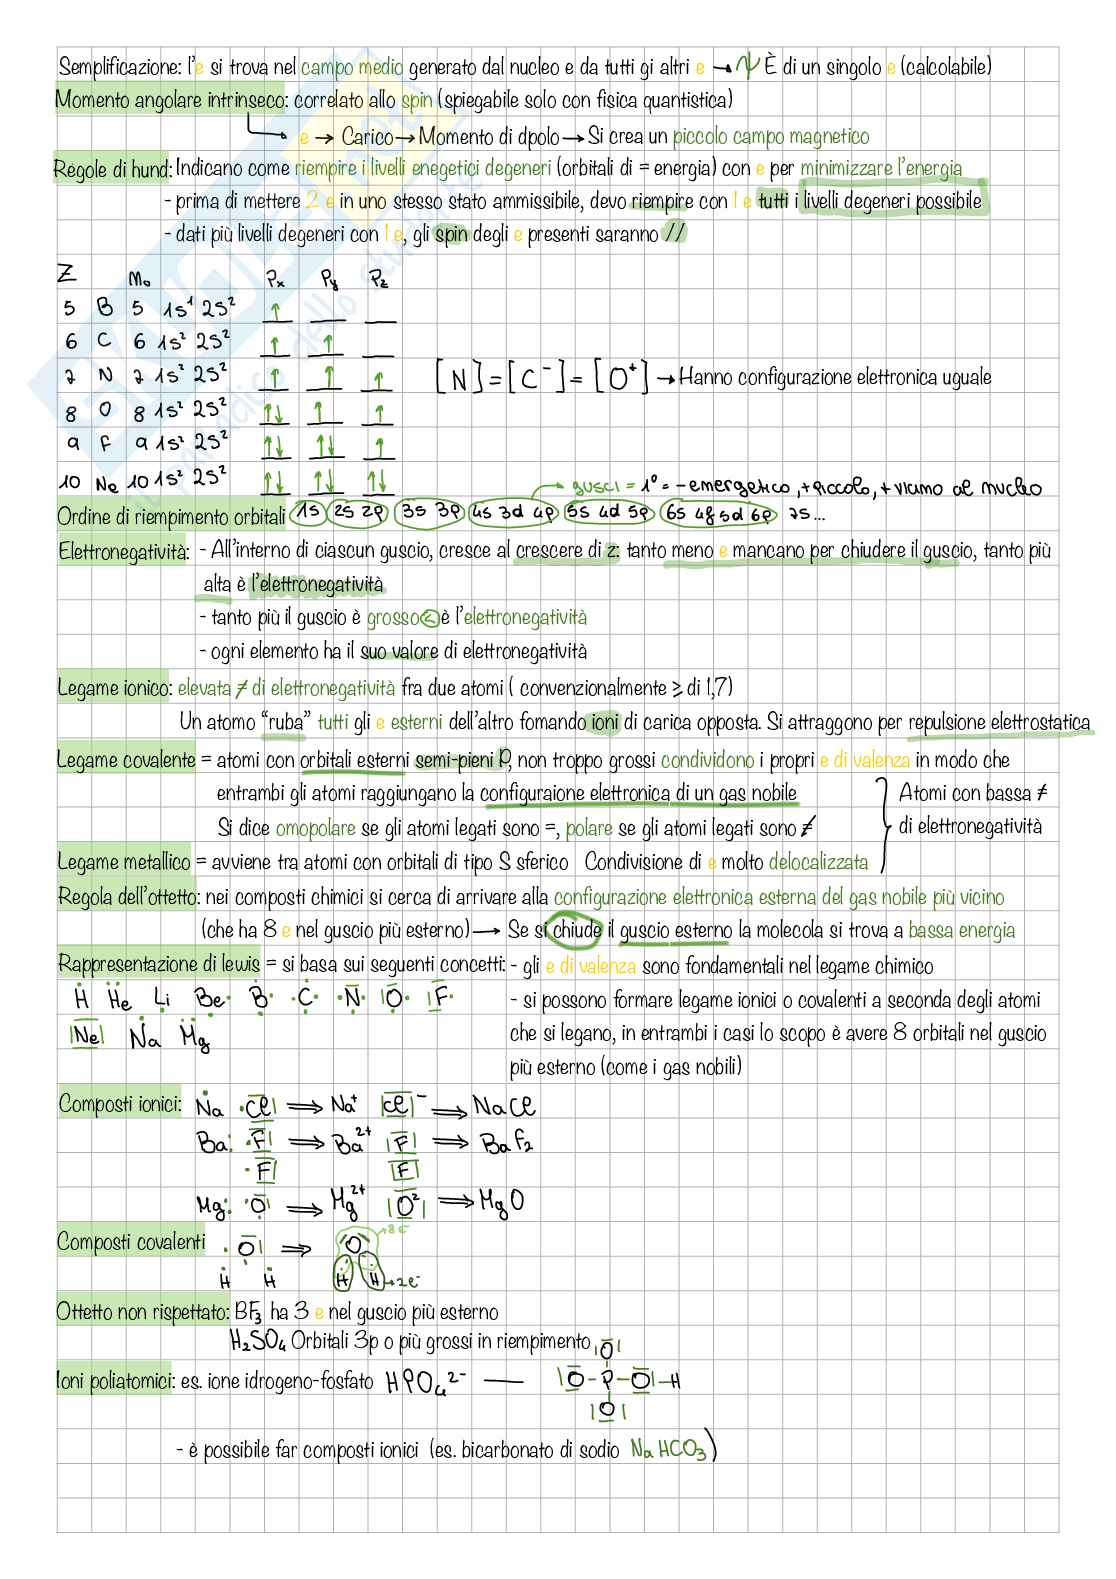 Semplificazione: l'e si trova nel campo medio generato dal nucleo e da tutti gi altri e → ψ È di un singolo e (calcolabile)
Momento angolare intrinseco: correlato allo spin (spiegabile solo con fisica quantistica)
e → Carico → Momento di dpolo → Si crea un piccolo campo magnetico
Regole di hund: Indicano come riempire i livelli enegetici degeneri (orbitali di = energia) con e per minimizzare l'energia
- prima di mettere 2 e in uno stesso stato ammissibile, devo riempire con 1 e tutti i livelli degeneri possibile
- dati più livelli degeneri con 1 e, gli spin degli e presenti saranno //
Z Mo Px Py Pz
5 B 5 1s¹ 2s² ↑
6 C 6 1s² 2s² ↑ ↑
7 N 7 1s² 2s² ↑ ↑ ↑ [N] = [C⁻] = [O⁺] → Hanno configurazione elettronica uguale
8 O 8 1s² 2s² ↑↓ ↑ ↑
9 F 9 1s² 2s² ↑↓ ↑↓ ↑
10 Ne 10 1s² 2s² ↑↓ ↑↓ ↑↓
→ gusci = 1° = - emergetico, + piccolo, + vicino al nucleo
Ordine di riempimento orbitali 1s 2s 2p 3s 3p 4s 3d 4p 5s 4d 5p 6s 4f 5d 6p 7s...
Elettronegatività: - All'interno di ciascun guscio, cresce al crescere di z: tanto meno e mancano per chiudere il guscio, tanto più
alta è l'elettronegatività
- tanto più il guscio è grosso < è l'elettronegatività
- ogni elemento ha il suo valore di elettronegatività
Legame ionico: elevata ≠ di elettronegatività fra due atomi ( convenzionalmente ⩾ di 1,7)
Un atomo "ruba" tutti gli e esterni dell'altro fomando ioni di carica opposta. Si attraggono per repulsione elettrostatica
Legame covalente = atomi con orbitali esterni semi-pieni P, non troppo grossi condividono i propri e di valenza in modo che
entrambi gli atomi raggiungano la configuraione elettronica di un gas nobile
Si dice omopolare se gli atomi legati sono =, polare se gli atomi legati sono ≠
Atomi con bassa ≠
di elettronegatività
Legame metallico = avviene tra atomi con orbitali di tipo S sferico Condivisione di e molto delocalizzata
Regola dell'ottetto: nei composti chimici si cerca di arrivare alla configurazione elettronica esterna del gas nobile più vicino
(che ha 8 e nel guscio più esterno) → Se si chiude il guscio esterno la molecola si trova a bassa energia
Rappresentazione di lewis = si basa sui seguenti concetti: - gli e di valenza sono fondamentali nel legame chimico
H He Li Be B C N O F
Ne Na Mg
- si possono formare legame ionici o covalenti a seconda degli atomi
che si legano, in entrambi i casi lo scopo è avere 8 orbitali nel guscio
più esterno (come i gas nobili)
Composti ionici: Na Cl ⟹ Na⁺ Cl⁻ ⟹ NaCl
Ba F ⟹ Ba²⁺ F ⟹ BaF₂
F F
Mg O ⟹ Mg²⁺ O² ⟹ MgO
Composti covalenti O ⟹ O → 8e⁻
H H H H → 2e⁻
Ottetto non rispettato: BF₃ ha 3 e nel guscio più esterno
H₂SO₄ Orbitali 3p o più grossi in riempimento
O
Ioni poliatomici: es. ione idrogeno-fosfato HPO₄²⁻ — O - P - O - H
O
- è possibile far composti ionici (es. bicarbonato di sodio NaHCO₃)